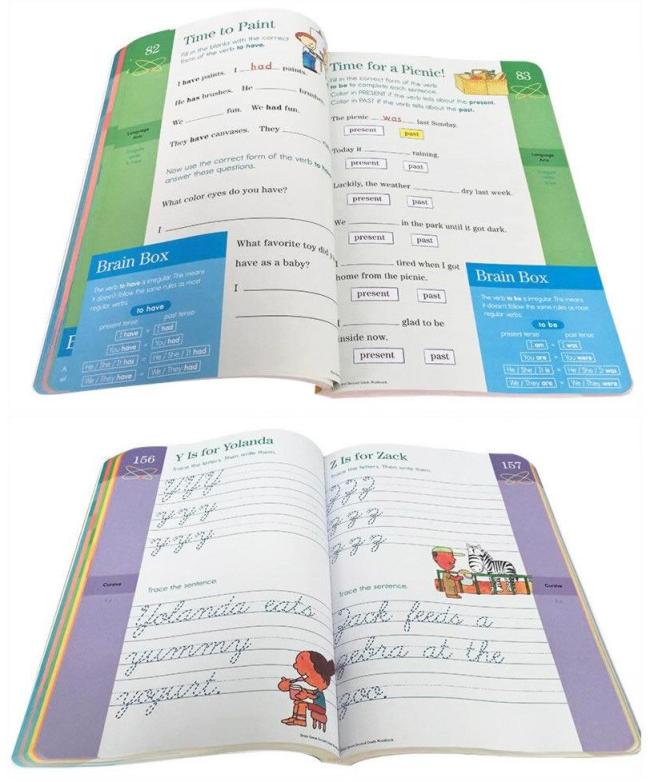 82
Time to Paint
Fill in the blanks with the correct
form of the verb to have.
I have paints. I had paints.
He has brushes. He ______ brushes.
We ______ fun. We had fun.
They have canvases. They ______
Now use the correct form of the verb to have
answer these questions.
What color eyes do you have?
I
What favorite toy did
have as a baby?
I
Brain Box
The verb to have is irregular. This means
it doesn't follow the same rules as most
regular verbs.
to have
present tense past tense
I have = I had
You have = You had
He / She / It has = He / She / It had
We / They have = We / They had
Language
Arts
83
Time for a Picnic!
Fill in the correct form of the verb
to be to complete each sentence.
Color in PRESENT if the verb tells about the present.
Color in PAST if the verb tells about the past.
The picnic was last Sunday.
present past
Today it ______ raining.
present past
Luckily, the weather ______ dry last week.
present past
We ______ in the park until it got dark.
present past
I ______ tired when I got
home from the picnic.
present past
I ______ glad to be
inside now.
present past
Language
Arts
Brain Box
The verb to be is irregular. This means
it doesn't follow the same rules as most
regular verbs.
to be
present tense past tense
I am = I was
You are = You were
He / She / It is = He / She / It was
We / They are = We / They were
156
Y Is for Yolanda
Trace the letters. Then write them.
Y Y Y
y y y
y y y
Cursive
Trace the sentence.
Yolanda eats
yummy
yogurt.
157
Z Is for Zack
Trace the letters. Then write them.
Z Z Z
z z z
z z z
Cursive
Trace the sentence.
Zack feeds a
zebra at the
zoo.